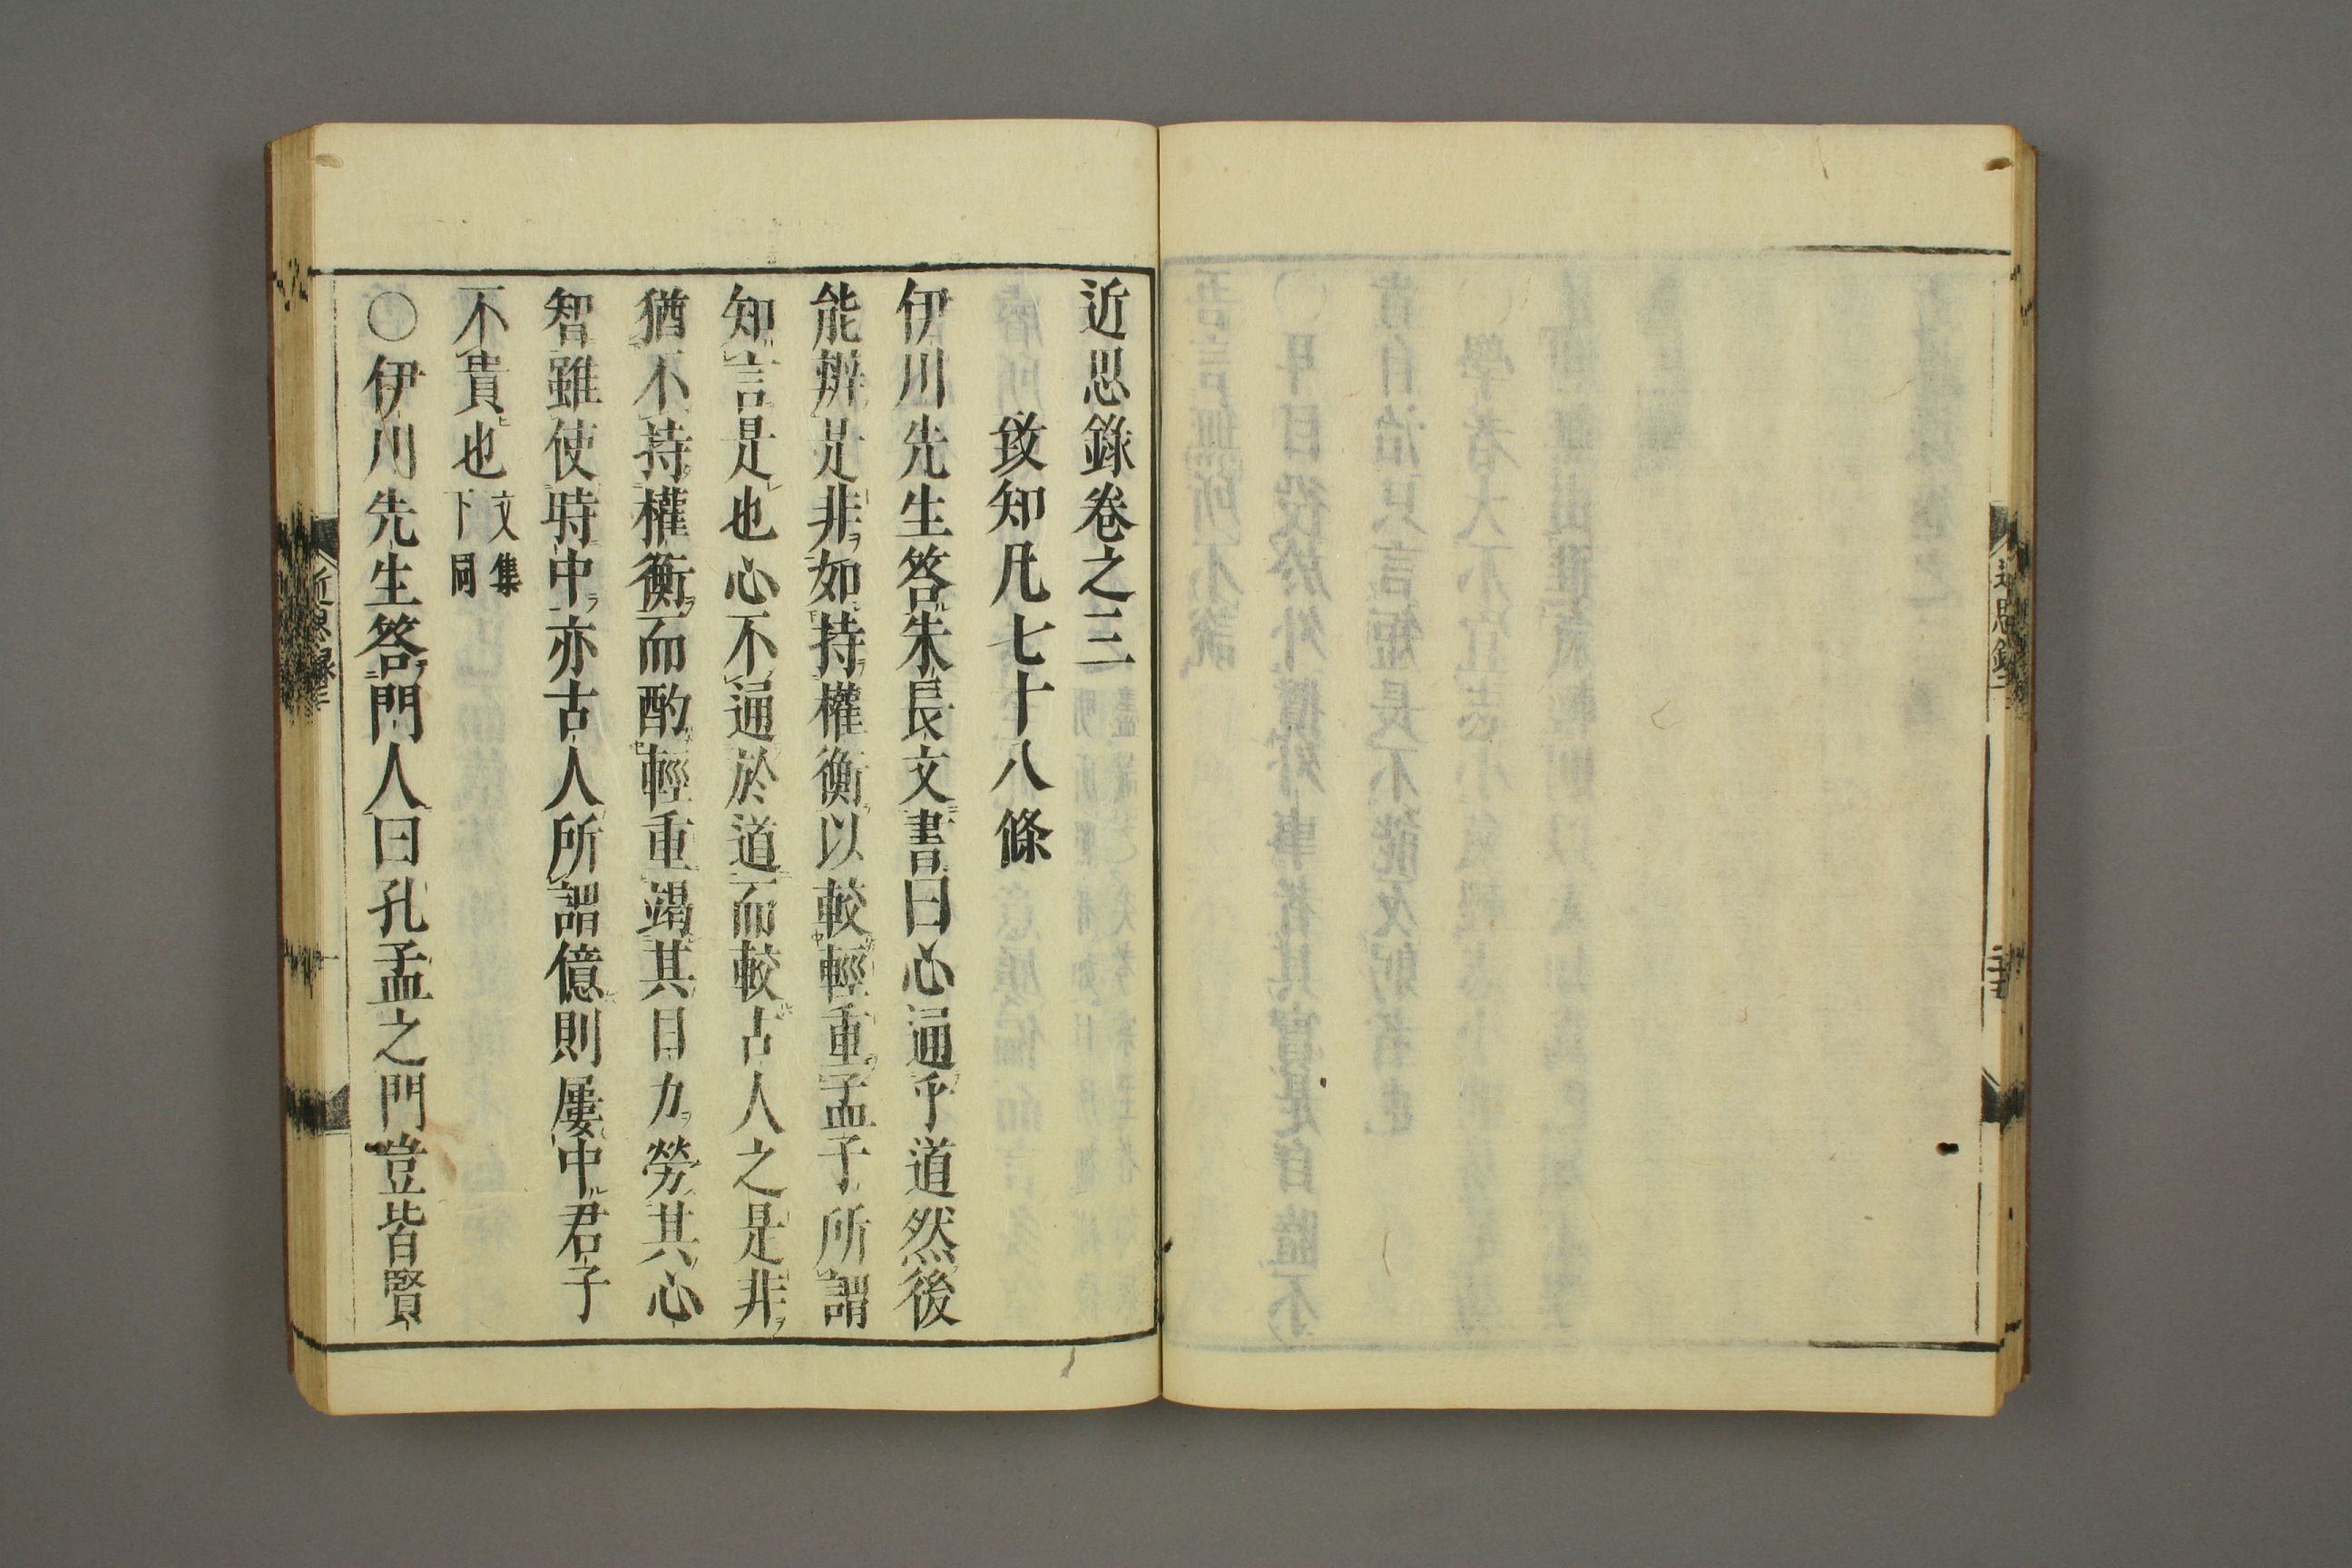 近思錄卷之三
致知凡七十八條
伊川先生答朱長文書曰心通乎道然後
能辨是非如持權衡以較輕重孟子所謂
知言是也心不通於道而較古人之是非
猶不持權衡而酌輕重竭其目力勞其心
智雖使時中亦古人所謂億則屢中君子
不貴也文集
下同
○伊川先生答門人曰孔孟之門豈皆賢
近思錄三